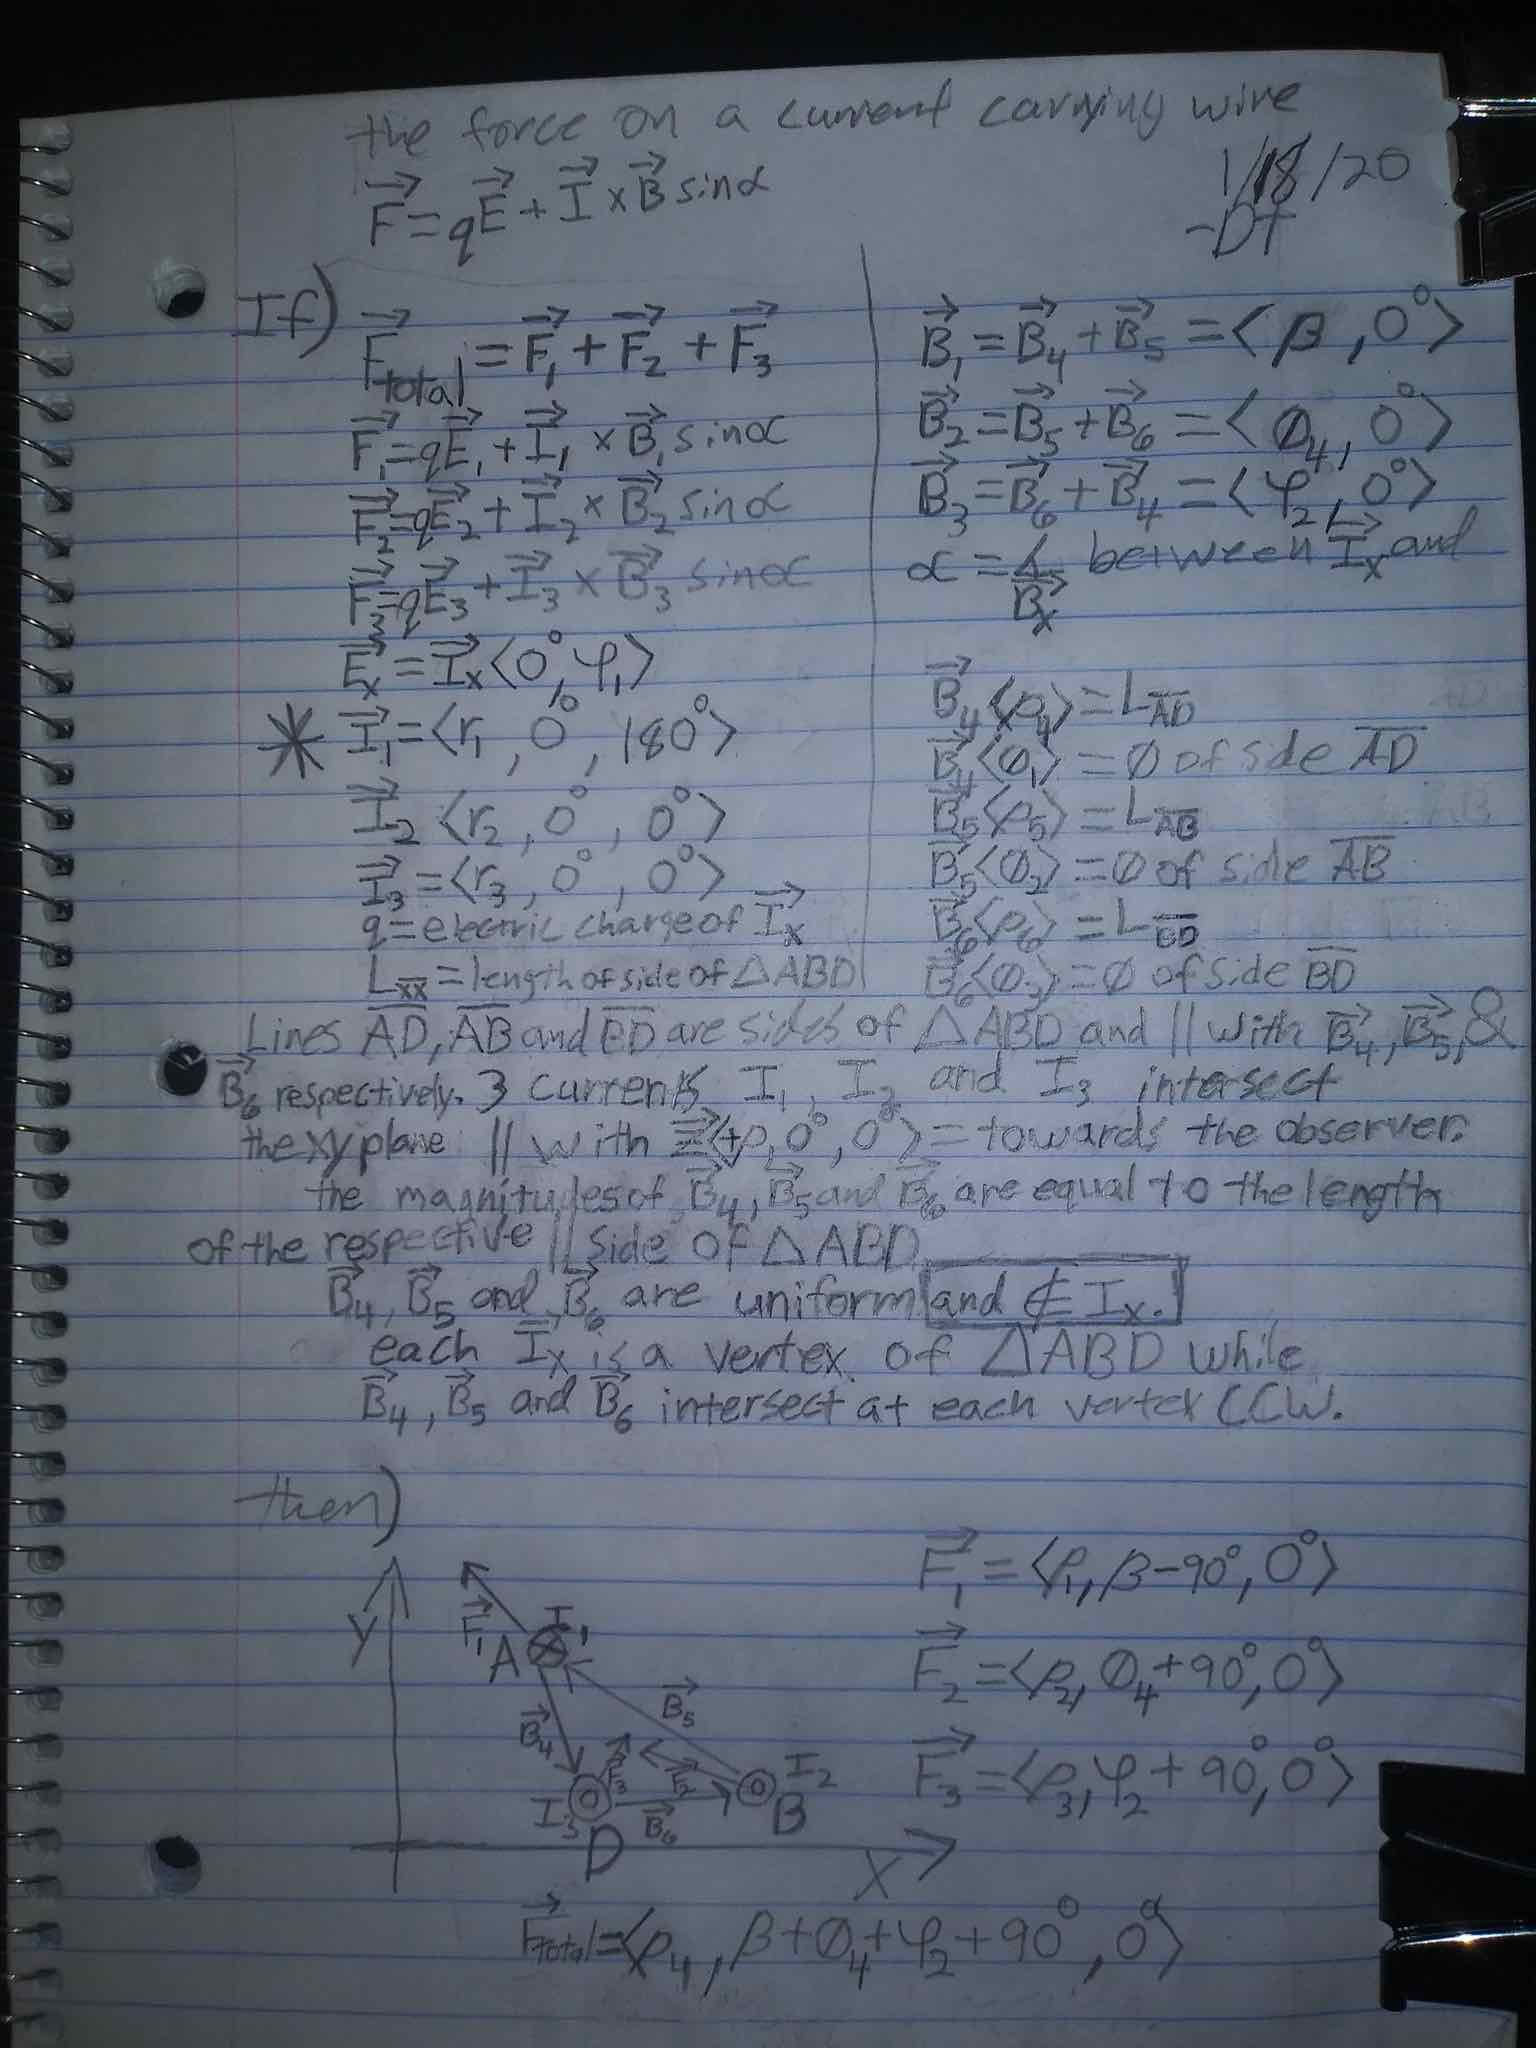 the force on a current carrying wire
F⃗ = qE⃗ + I⃗ × B⃗ sin∝
1/18/20
-DT
If)
F⃗total = F⃗₁ + F⃗₂ + F⃗₃
F⃗₁ = qE⃗₁ + I⃗₁ × B⃗₁ sin∝
F⃗₂ = qE⃗₂ + I⃗₂ × B⃗₂ sin∝
F⃗₃ = qE⃗₃ + I⃗₃ × B⃗₃ sin∝
E⃗ₓ = I⃗ₓ⟨0°, φ₁⟩
* I⃗₁ = ⟨r₁, 0°, 180°⟩
I⃗₂ ⟨r₂, 0°, 0°⟩
I⃗₃ = ⟨r₃, 0°, 0°⟩
q = electric charge of I⃗ₓ
L_XX = length of side of △ABD
B⃗₁ = B⃗₄ + B⃗₅ = ⟨β, 0°⟩
B⃗₂ = B⃗₅ + B⃗₆ = ⟨Ø₄, 0°⟩
B⃗₃ = B⃗₆ + B⃗₄ = ⟨φ₂, 0°⟩
∝ = ∠ between I⃗ₓ and
B⃗ₓ
B⃗₄⟨ρ₄⟩ = L_AD
B⃗₄⟨Ø₁⟩ = Ø of side AD
B⃗₅⟨ρ₅⟩ = L_AB
B⃗₅⟨Ø₂⟩ = Ø of side AB
B⃗₆⟨ρ₆⟩ = L_BD
B⃗₆⟨Ø₃⟩ = Ø of side BD
Lines AD, AB and BD are sides of △ABD and || with B⃗₄, B⃗₅, &
B⃗₆ respectively. 3 currents I₁, I₂ and I₃ intersect
the xy plane || with Z⃗⟨+ρ, 0°, 0°⟩ = towards the observer.
the magnitudes of B⃗₄, B⃗₅ and B⃗₆ are equal to the length
of the respective || side of △ABD
B⃗₄, B⃗₅ and B⃗₆ are uniform and ⊄ Iₓ.
each I⃗ₓ is a vertex of △ABD while
B⃗₄, B⃗₅ and B⃗₆ intersect at each vertex CCW.
then)
Y
F⃗₁
I₁
A
B⃗₅
B⃗₄
F⃗₃
F⃗₂
I₂
B
I₃
B⃗₆
D
X
F⃗₁ = ⟨ρ₁, β-90°, 0°⟩
F⃗₂ = ⟨ρ₂, Ø₄+90°, 0°⟩
F⃗₃ = ⟨ρ₃, φ₂+90°, 0°⟩
F⃗total = ⟨ρ₄, β+Ø₄+φ₂+90°, 0°⟩